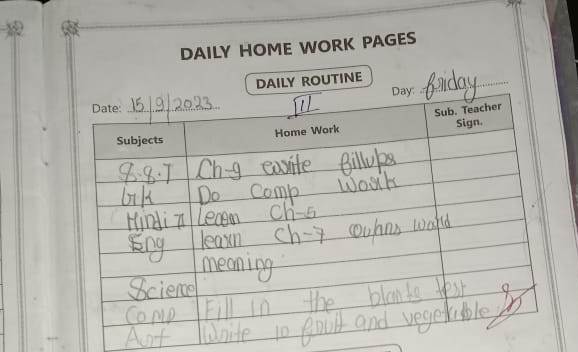 DAILY HOME WORK PAGES
DAILY ROUTINE
Date: 15/9/2023 Day: friday
III
Subjects Home Work Sub. Teacher Sign.
S.S.T Ch-9 write fillups
G.K Do Comp Work
Hindi Learn Ch-5
Eng learn Ch-7 word
meaning
Science
Comp Fill in the blanks test
Art Write 10 fruit and vegetable